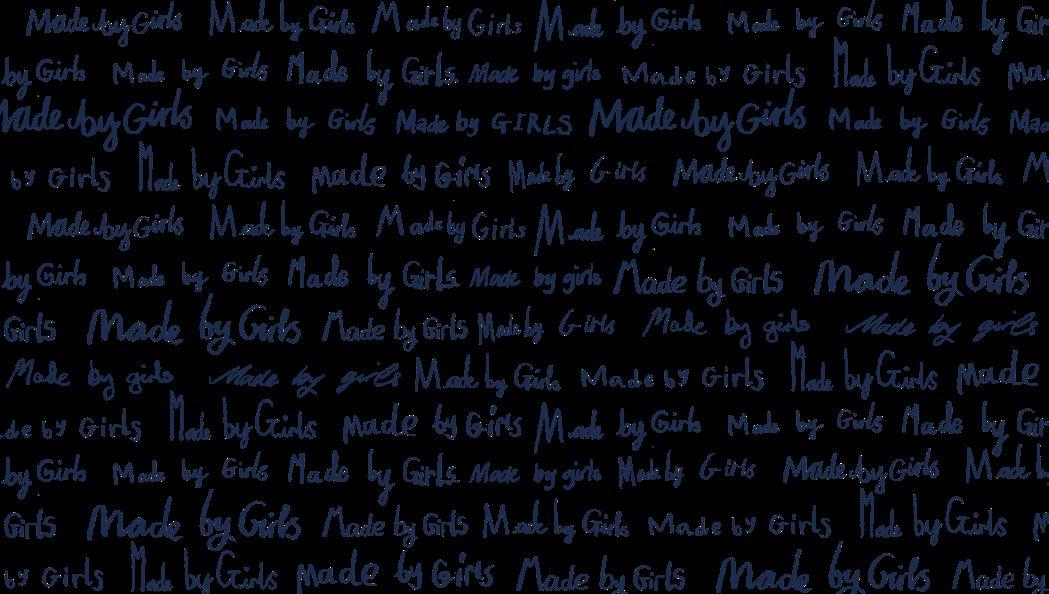 Made by Girls Made by Girls Made by Girls Made by Girls Made by Girls Made by Gir
by Girls Made by Girls Made by Girls Made by girls Made by Girls Made by Girls Ma
Made by Girls Made by Girls Made by GIRLS Made by Girls Made by Girls Mad
by Girls Made by Girls made by Girls Made by Girls Made by Girls Made by Girls M
Made by Girls Made by Girls Made by Girls Made by Girls Made by Girls Made by Gir
by Girls Made by Girls Made by Girls Made by girls Made by Girls Made by Girls
Girls Made by Girls Made by Girls Made by Girls Made by girls Made by girls
Made by girls Made by girls Made by Girls Made by Girls Made by Girls made
de by Girls Made by Girls made by Girls Made by Girls Made by Girls Made by Gir
by Girls Made by Girls Made by Girls Made by girls Made by Girls Made by Girls Made by
Girls Made by Girls Made by Girls Made by Girls Made by Girls Made by Girls M
by Girls Made by Girls made by Girls Made by Girls Made by Girls Made by